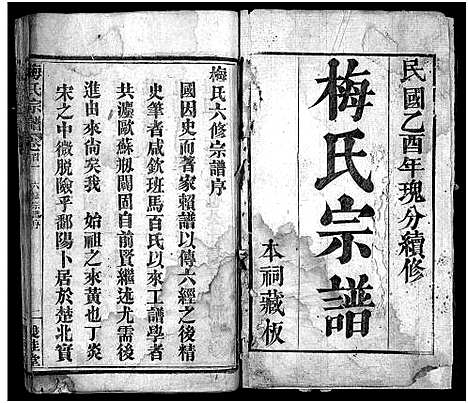 民國乙酉年瑰分續修
梅氏宗譜
本祠藏板
梅氏六修宗譜序
國因史而著家賴譜以傳六經之後精
史筆者咸欽班馬百氏以來工譜學者
共瀍歐蘇剏闢固自前賢繼述尤需後
進由來尚矣我 始祖之來黃也丁炎
宋之中微脫險乎鄱陽卜居於楚北寳
梅氏宗譜